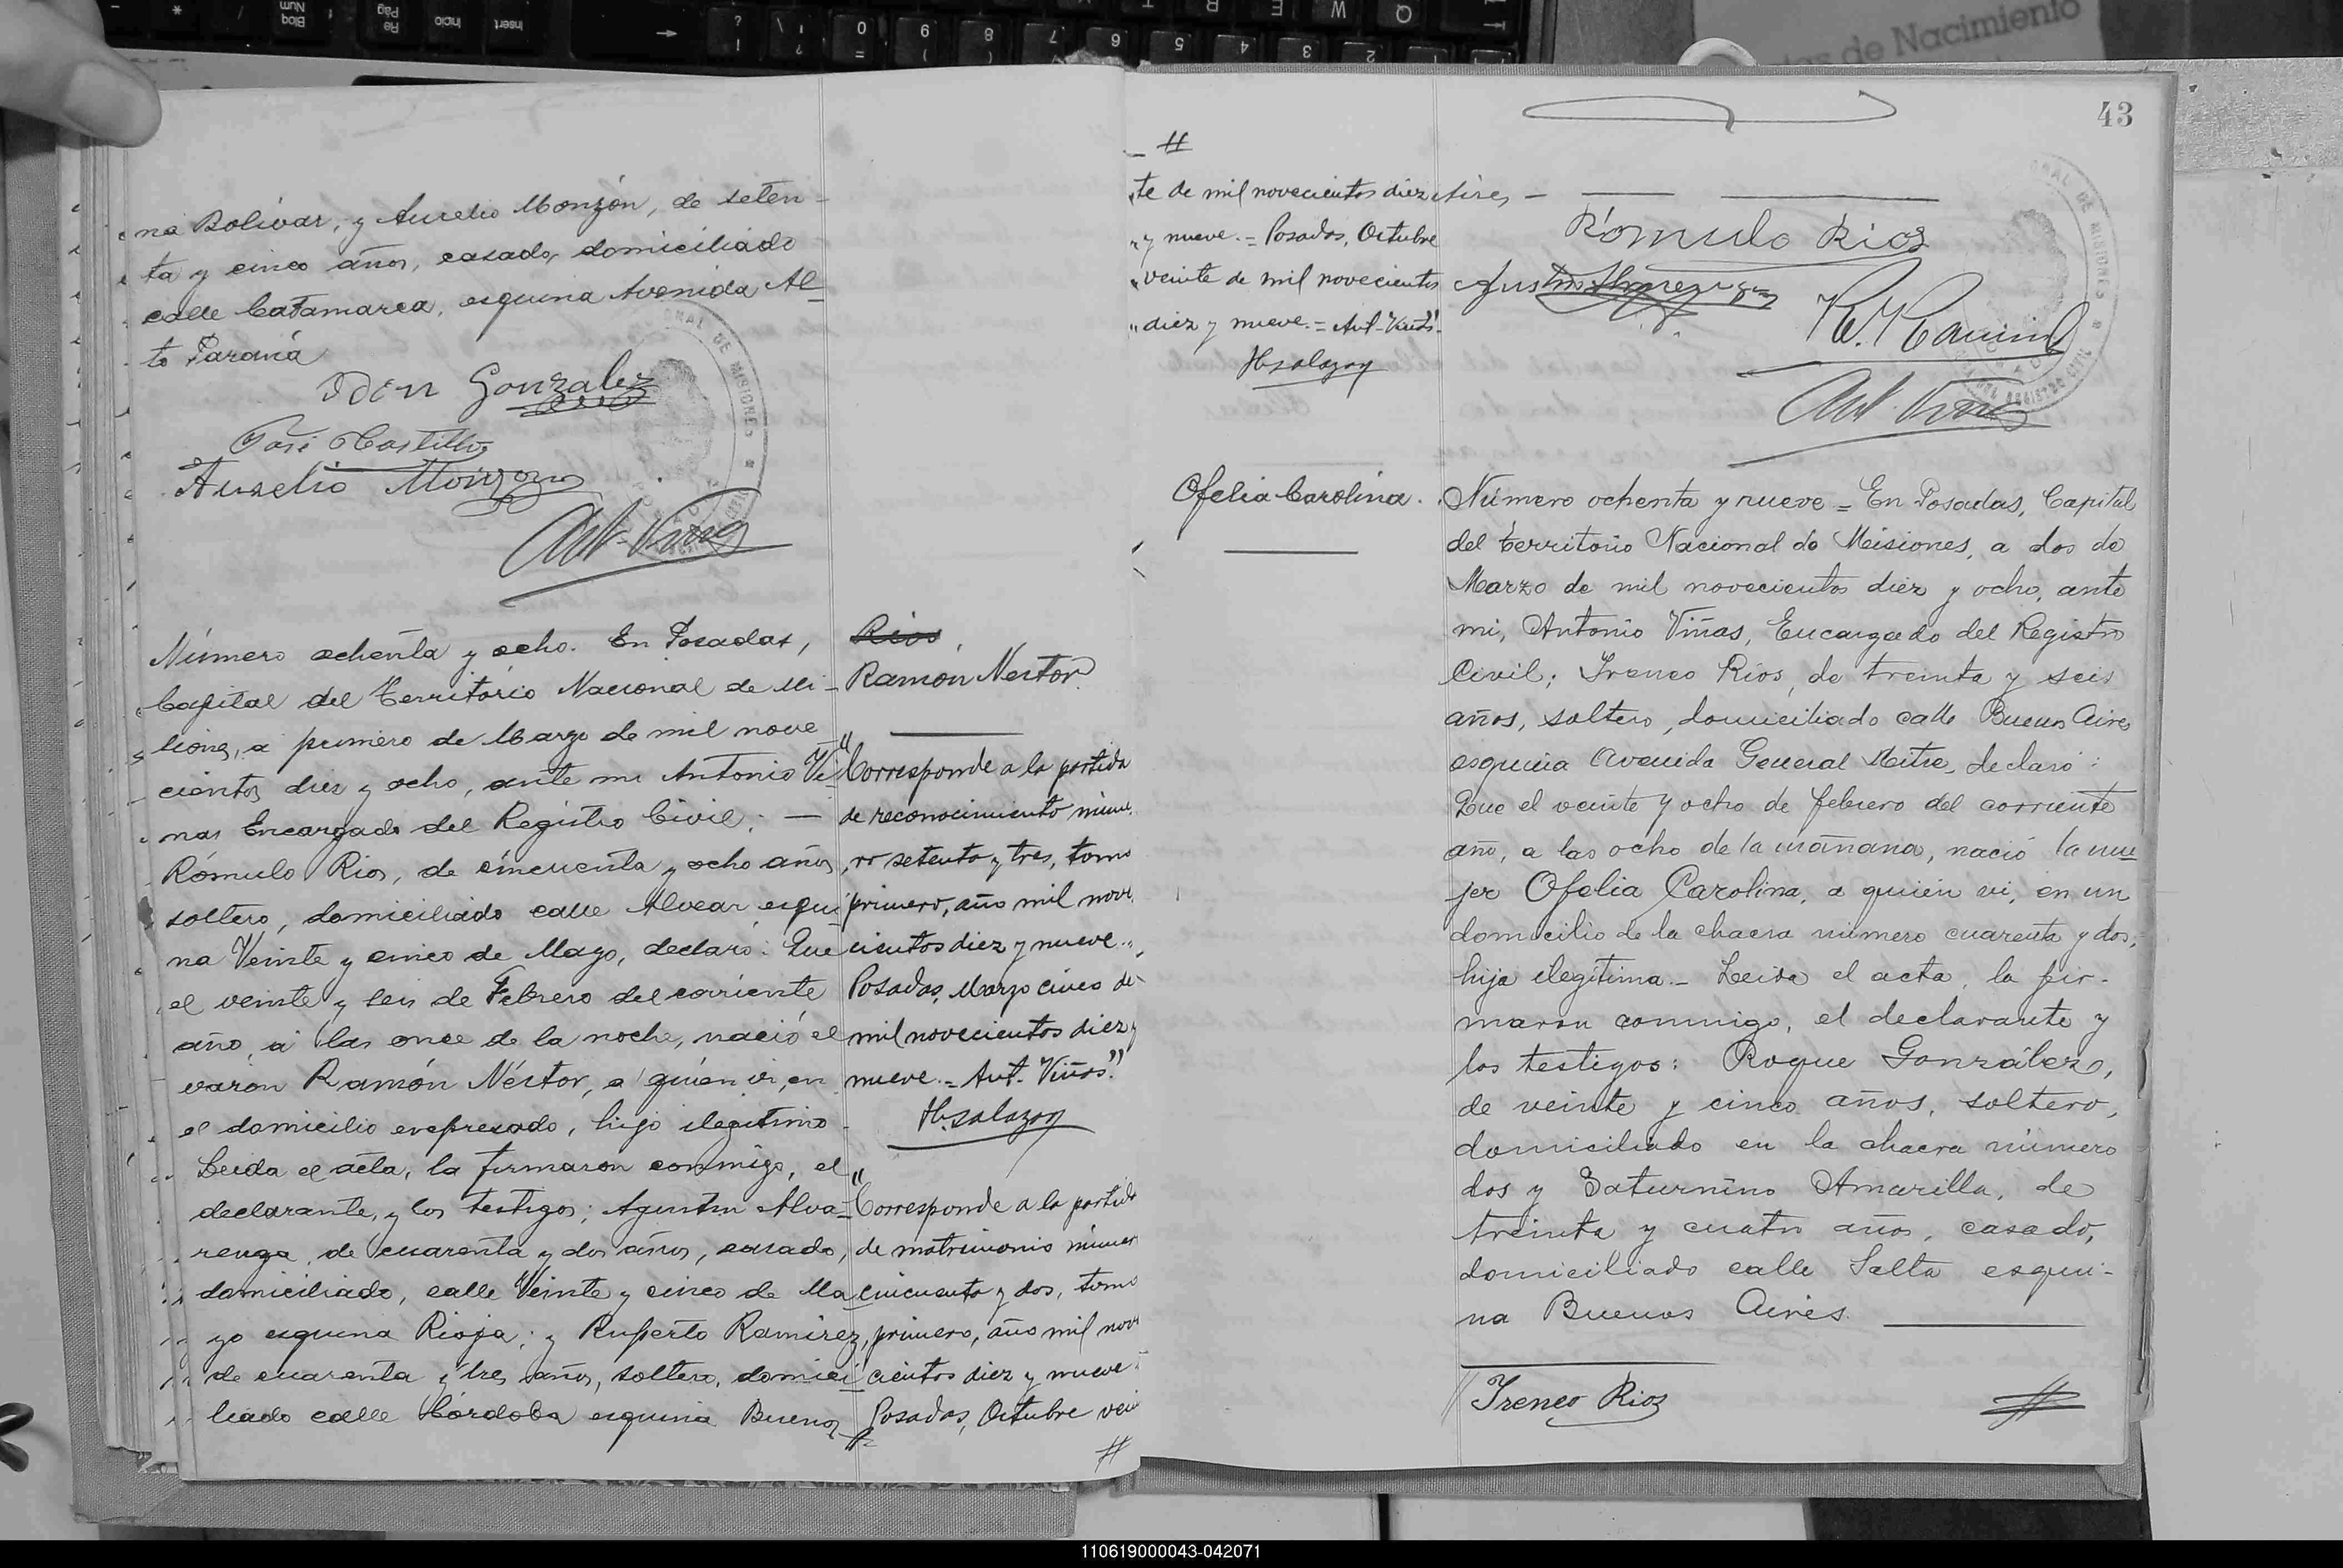 na Bolívar, y Aurelio Monzón, de seten-
ta y cinco años, casado, domiciliado
calle Catamarca, esquina Avenida Al-
to Paraná
Iden Gonzalez
José Castillo
Aurelio Monzon
Ant. Viñas
Número ochenta y ocho. En Posadas,
Capital del Territorio Nacional de Mi-
siones, a primero de Marzo de mil nove
cientos diez y ocho, ante mi Antonio Vi-
ñas Encargado del Registro Civil; —
Rómulo Rios, de cincuenta y ocho años,
soltero, domiciliado calle Alvear esqui
na Veinte y cinco de Mayo, declaró: Que
el veinte y seis de Febrero del corriente
año, a las once de la noche, nació el
varón Ramón Néstor, a quien vi, en
el domicilio expresado, hijo ilegitimo
Leida el acta, la firmaron conmigo, el
declarante, y los testigos; Agustin Alva-
renga, de cuarenta y dos años, casado,
domiciliado, calle Veinte y cinco de Ma
yo esquina Rioja; y Ruperto Ramirez,
de cuarenta y tres años, soltero, domici
liado calle Córdoba esquina Buenos
Rios,
Ramón Nestor
"Corresponde a la partida
de reconocimiento núme.
ro setenta y tres, tomo
primero, año mil nove
cientos diez y nueve.,
Posadas, Marzo cinco de
mil novecientos diez y
nueve.= Ant. Viñas."
H. Salazar
"Corresponde a la partida
de matrimonio númer
cincuenta y dos, tomo
primero, año mil nove
cientos diez y nueve
Posadas, Octubre vein
#
43
#
te de mil novecientos diez
y nueve.= Posadas, Octubre
veinte de mil novecientos
diez y nueve.= Ant. Viñas".
H. Salazar
Aires, —
Rómulo Rios
Ant. Viñas
Ofelia Carolina.
Número ochenta y nueve = En Posadas, Capital
del Territorio Nacional de Misiones, a dos de
Marzo de mil novecientos diez y ocho, ante
mi, Antonio Viñas, Encargado del Registro
Civil; Ireneo Rios, de treinta y seis
años, soltero, domiciliado calle Buenos Aires
esquina Avenida General Mitre, declaró:
Que el veinte y ocho de febrero del corriente
año, a las ocho de la mañana, nació la mu
jer Ofelia Carolina, a quien vi, en un
domicilio de la chacra número cuarenta y dos,
hija ilegítima.- Leida el acta, la fir-
maron conmigo, el declarante y
los testigos: Roque González,
de veinte y cinco años, soltero,
domiciliado en la chacra número
dos y Saturnino Amarilla, de
treinta y cuatro años, casado,
domiciliado calle Salta esqui-
na Buenos Aires.
Ireneo Rios
#
110619000043-042071